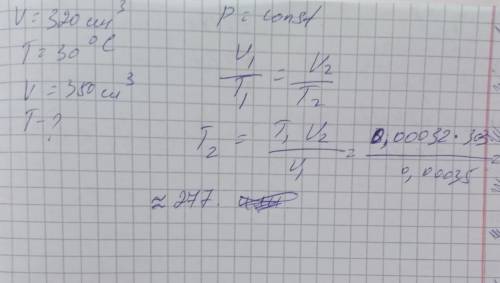 V = 320 см³
T = 30 °C
V = 350 см³
T - ?
P = const
V₁/T₁ = V₂/T₂
T₂ = T₁ V₂/V₁ = 0,00032 · 303/0,00035
≈ 277.